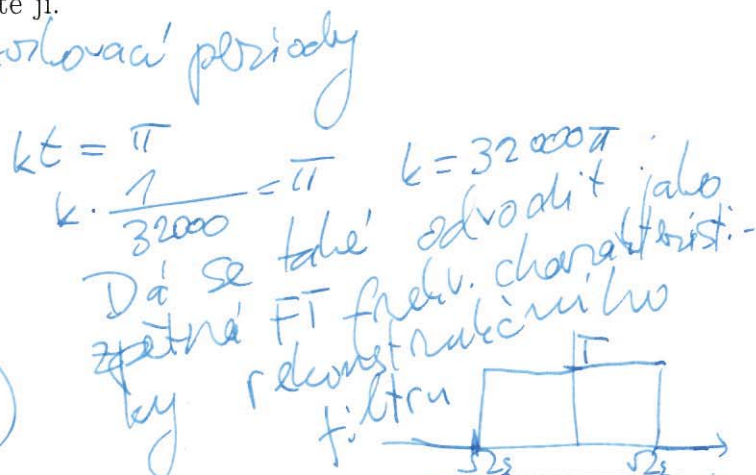 te ji.
vzorkovací periody
kt = π
k · 1/32000 = π k = 32000π
Dá se také odvodit jako
zpětná FT frekv. charakteristi-
ky rekonstrukčního
filtru
T
Ωs Ωs